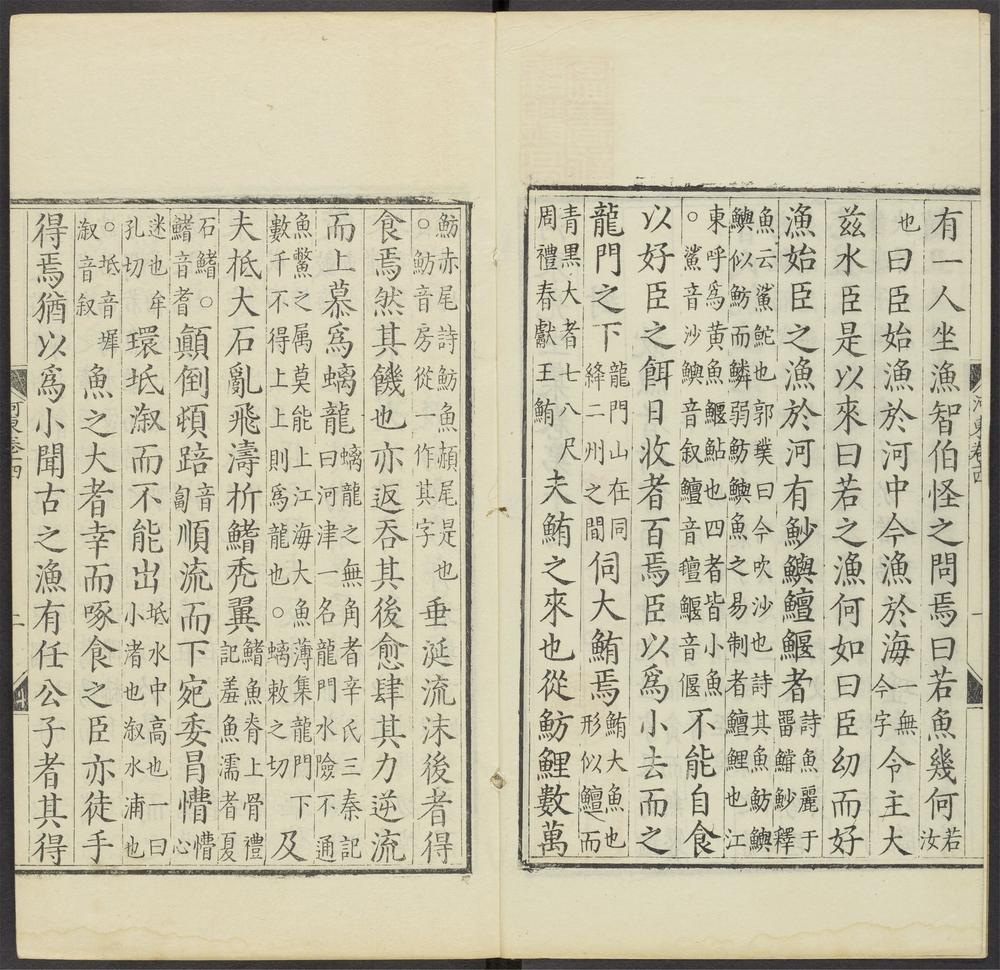 有一人坐漁智伯怪之問焉曰若魚幾何若汝
也曰臣始漁於河中今漁於海一無今字令主大
茲水臣是以來曰若之漁何如曰臣幼而好
漁始臣之漁於河有魦鱮鱣鰋者詩魚麗于罶鱨魦釋
魚云鯊鮀也郭璞曰今吹沙也詩其魚魴鱮
鱮似魴而鱗弱魴鱮魚之易制者鱣鯉也江
東呼爲黄魚鰋鮎也四者皆小魚。鯊音沙鱮音叙鱣音鰋音偃不能自食
以好臣之餌日收者百焉臣以爲小去而之
龍門之下龍門山在同絳二州之間伺大鮪焉鮪大魚也形似鱣而
青黑大者七八尺周禮春獻王鮪夫鮪之來也從魴鯉數萬
河東卷十四
一
魴赤尾詩魴魚頳尾是也。魴音房從一作其字垂涎流沫後者得
食焉然其饑也亦返吞其後愈肆其力逆流
而上慕爲螭龍螭龍之無角者辛氏三秦記曰河津一名龍門水險不通
魚鼈之属莫能上江海大魚薄集龍門下數千不得上上則爲龍也。螭敕之切及
夫柢大石亂飛濤折鰭禿翼鰭魚脊上骨禮記羞魚濡者夏
右鰭。鰭音耆顛倒頓踣音匐順流而下宛委冒懵懵心
迷也牟孔切環坻溆而不能出坻水中高也一曰小渚也溆水浦也
。坻音墀溆音叙魚之大者幸而啄食之臣亦徒手
得焉猶以爲小聞古之漁有任公子者其得
河東卷十四
二